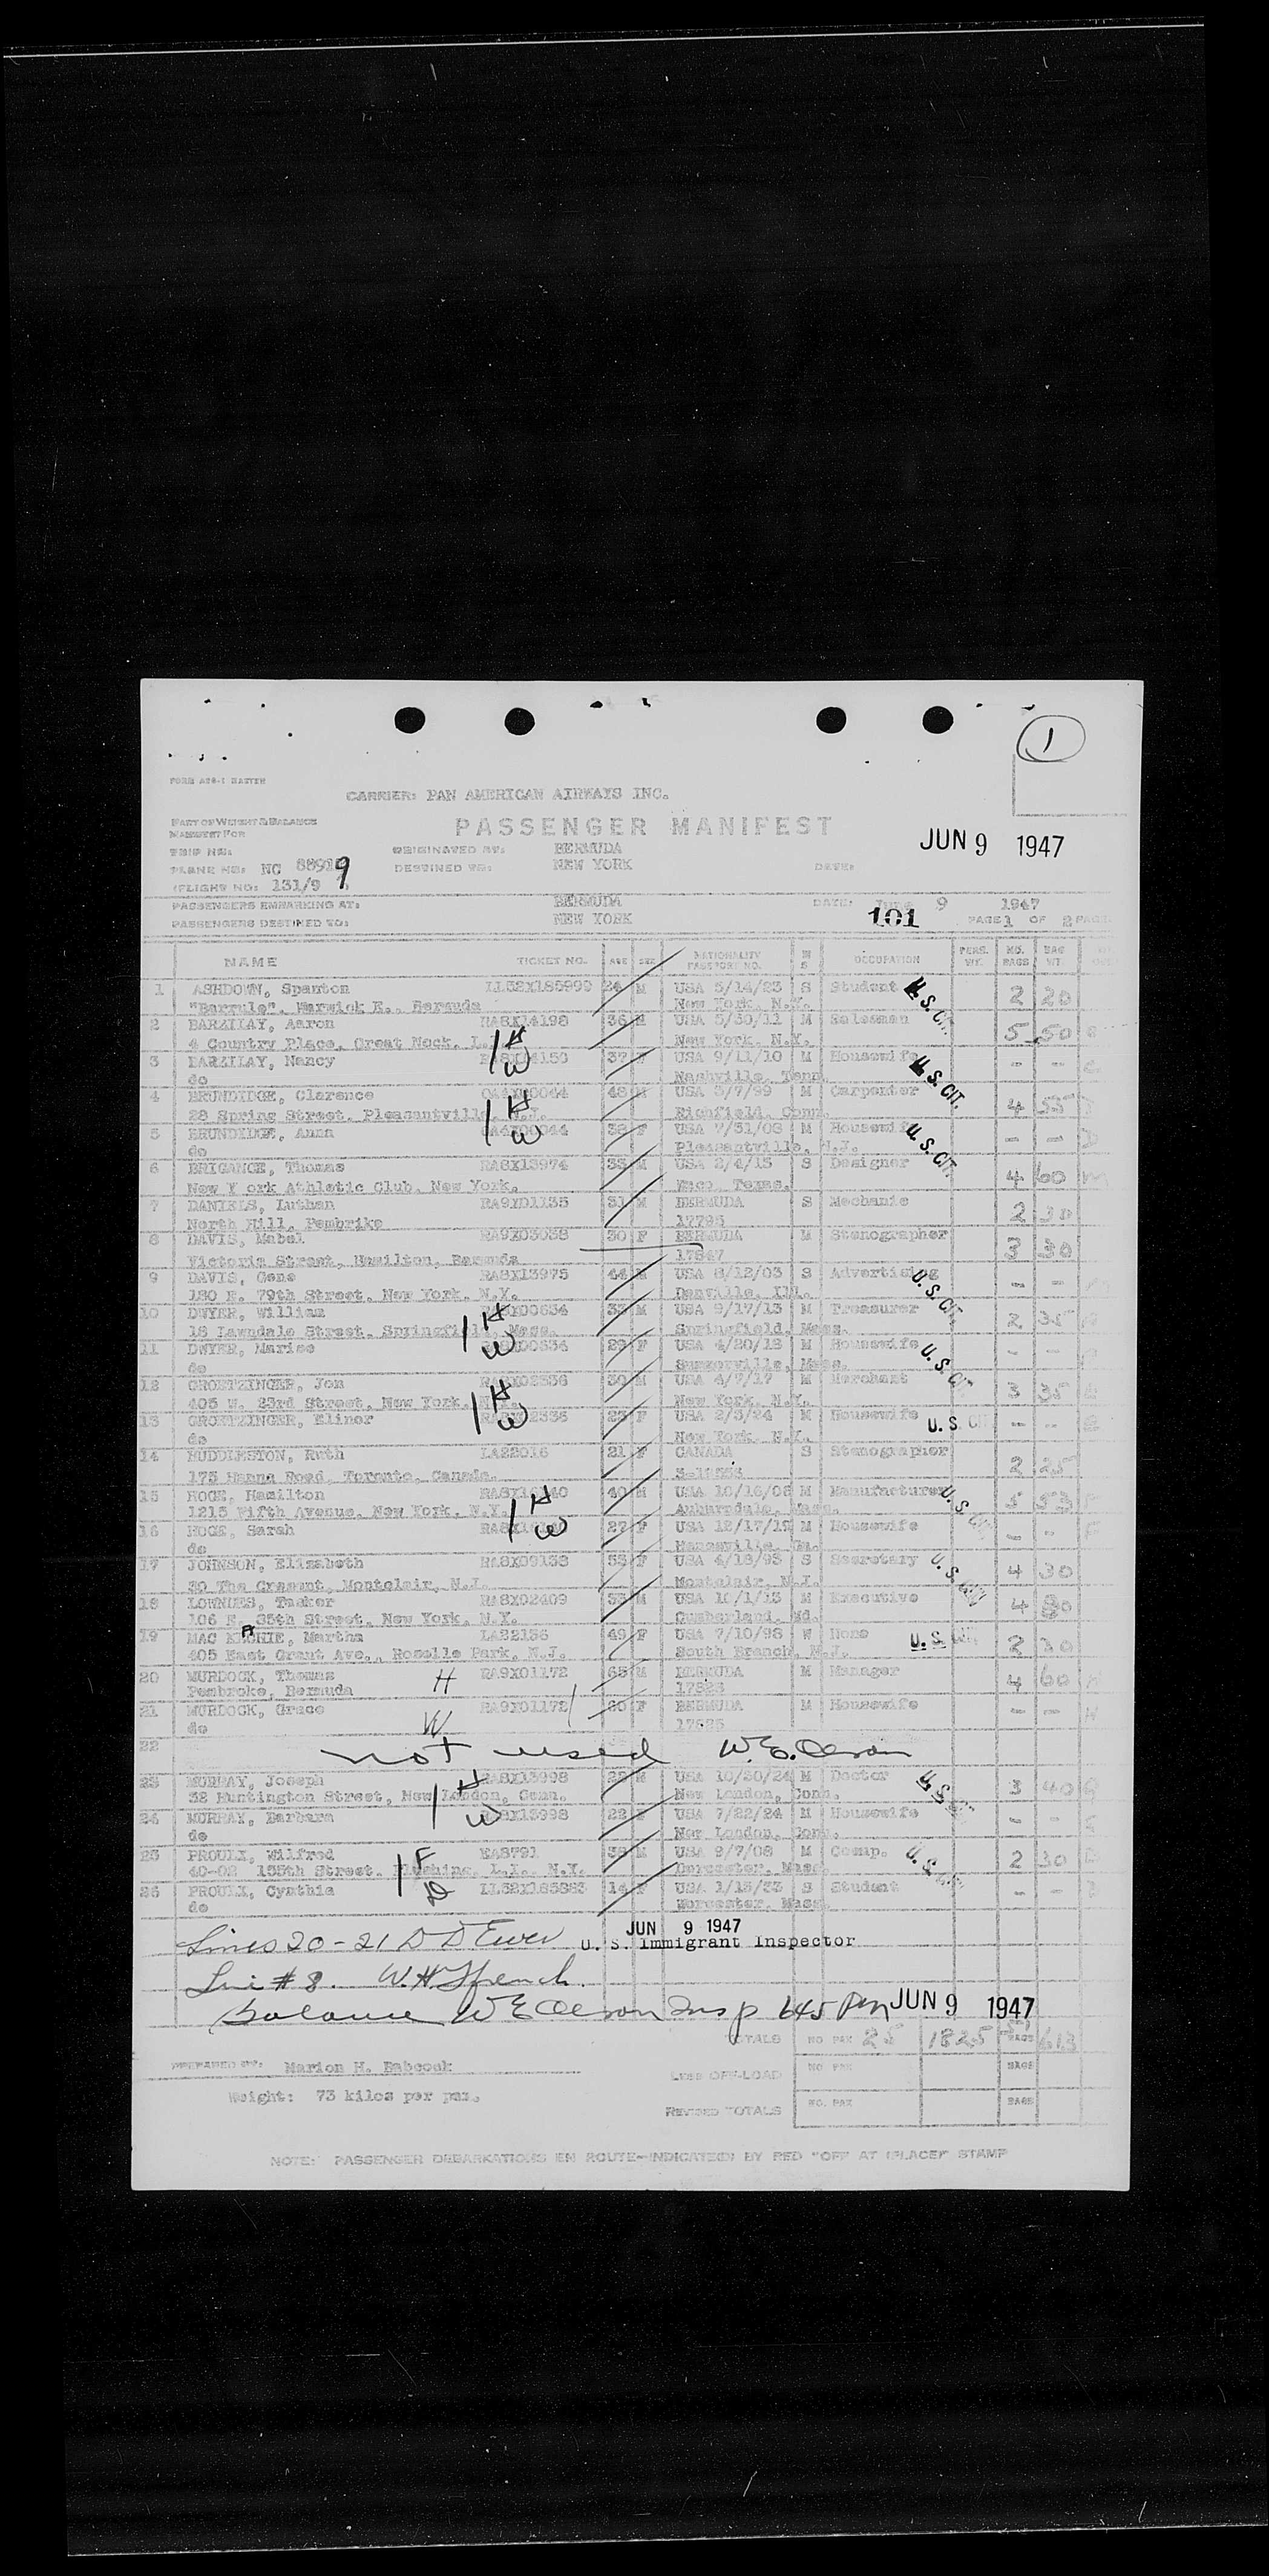 1
CARRIER: PAN AMERICAN AIRWAYS INC.
PART OF WEIGHT & BALANCE
MANIFEST FOR
PASSENGER MANIFEST
JUN 9 1947
TRIP NO:
ORIGINATED AT: BERMUDA
PLANE NO: NC 88919
DESTINED TO: NEW YORK
DATE:
FLIGHT NO: 131/9
PASSENGERS EMBARKING AT: BERMUDA DATE: June 9 1947
PASSENGERS DESTINED TO: NEW YORK 101 PAGE 1 OF 2 PAGES
NAME TICKET NO. AGE SEX NATIONALITY PASSPORT NO. OCCUPATION PERS. WT. NO. BAGS BAG WT.
1 ASHDOWN, Spanton 24 M USA 5/14/23 S Student U.S. CIT. 2 20
Warwick E., Bermuda New York, N.Y.
2 BARZILAY, Aaron RA8X14198 36 M USA 5/30/11 M Salesman 5 50
4 Country Place, Great Neck, L. New York, N.Y.
3 BARZILAY, Nancy 37 F USA 9/11/10 M Housewife - - U.S. CIT.
do Nashville, Tenn.
4 BRUNDIDGE, Clarence 48 M USA 3/7/99 M Carpenter 4 55
28 Spring Street, Pleasantville, N.J. Richfield, Conn.
5 BRUNDIDGE, Anna 38 F USA 7/31/08 M Housewife - - U.S. CIT.
do Pleasantville, N.J.
6 BRIGANCE, Thomas RA8X13974 33 M USA 2/4/13 S Designer 4 60
New Y ork Athletic Club, New York. Waco, Texas.
7 DANIELS, Luthan 31 M BERMUDA S Mechanic 2 30
North Hill, Pembrike 17795
8 DAVIS, Mabel RA9X03038 30 F BERMUDA M Stenographer 3 30
Victoria Street, Hamilton, Bermuda 17847
9 DAVIS, Gene RA8X13975 44 M USA 8/12/03 S Advertising - - U.S. CIT.
180 E. 79th Street, New York, N.Y. Danville, Ill.
10 DWYER, William 33 M USA 9/17/13 M Treasurer 2 35
18 Lawndale Street, Springfield, Mass. Springfield, Mass.
11 DWYER, Marise 29 F USA 4/20/18 M Housewife - - U.S. CIT.
do Mass.
12 GROETZINGER, Jon 30 M USA 4/7/17 M Merchant 3 35
405 W. 23rd Street, New York, N.Y. New York, N.Y.
13 GROETZINGER, Elinor 23 F USA 2/3/24 M Housewife U.S. CIT. - -
do New York, N.Y.
14 HUDDLESTON, Ruth LA22016 21 F CANADA S Stenographer 2 25
175 Hanna Road, Toronto, Canada.
15 HOGE, Hamilton 40 M USA 10/16/06 M Manufacturer U.S. CIT. 5 53
1215 Fifth Avenue, New York, N.Y. Auburndale, Mass.
16 HOGE, Sarah 27 F USA 12/17/19 M Housewife - -
do Ga.
17 JOHNSON, Elizabeth RA8X09138 53 F USA 4/18/93 S Secretary U.S. CIT. 4 30
30 The Cresent, Montclair, N.J. Montclair, N.J.
18 LOWNDES, Tasker RA8X02409 33 M USA 10/1/13 M Executive 4 80
106 E. 35th Street, New York, N.Y. Cumberland, Md.
19 Martha LA22136 49 F USA 7/10/98 W None U.S. CIT. 2 30
405 East Grant Ave., Roselle Park, N.J. South Branch, N.J.
20 MURDOCK, Thomas H RA9X01172 65 M BERMUDA M Manager 4 60
Pembroke, Bermuda
21 MURDOCK, Grace W RA9X01172 60 F BERMUDA M Housewife - -
do
22 not used W.E. Olson
23 MURRAY, Joseph RA8X13998 22 M USA 10/20/24 M Doctor 3 40
32 Huntington Street, New London, Conn. New London, Conn.
24 MURRAY, Barbara RA8X13998 22 F USA 7/22/24 M Housewife - -
do New London, Conn.
25 PROULX, Wilfred EA8791 38 M USA 9/7/08 M Comp. U.S. CIT. 2 30
40-02 155th Street, Flushing, L.I., N.Y. Mass.
26 PROULX, Cynthia 14 F USA 1/15/33 S Student - -
do Worcester, Mass.
Lines 20-21 JUN 9 1947
U. S. Immigrant Inspector
Line # 8. W.H. French
Balance W E Olson Insp 645 pm JUN 9 1947
TOTALS NO. PAX 25 1825 BAGS 613
PREPARED BY: Marion H. Babcock
LESS OFF-LOAD NO. PAX BAGS
Weight: 73 kilos per pax.
REVISED TOTALS NO. PAX BAGS
NOTE: PASSENGER DEBARKATIONS EN ROUTE-INDICATED BY RED "OFF AT (PLACE)" STAMP